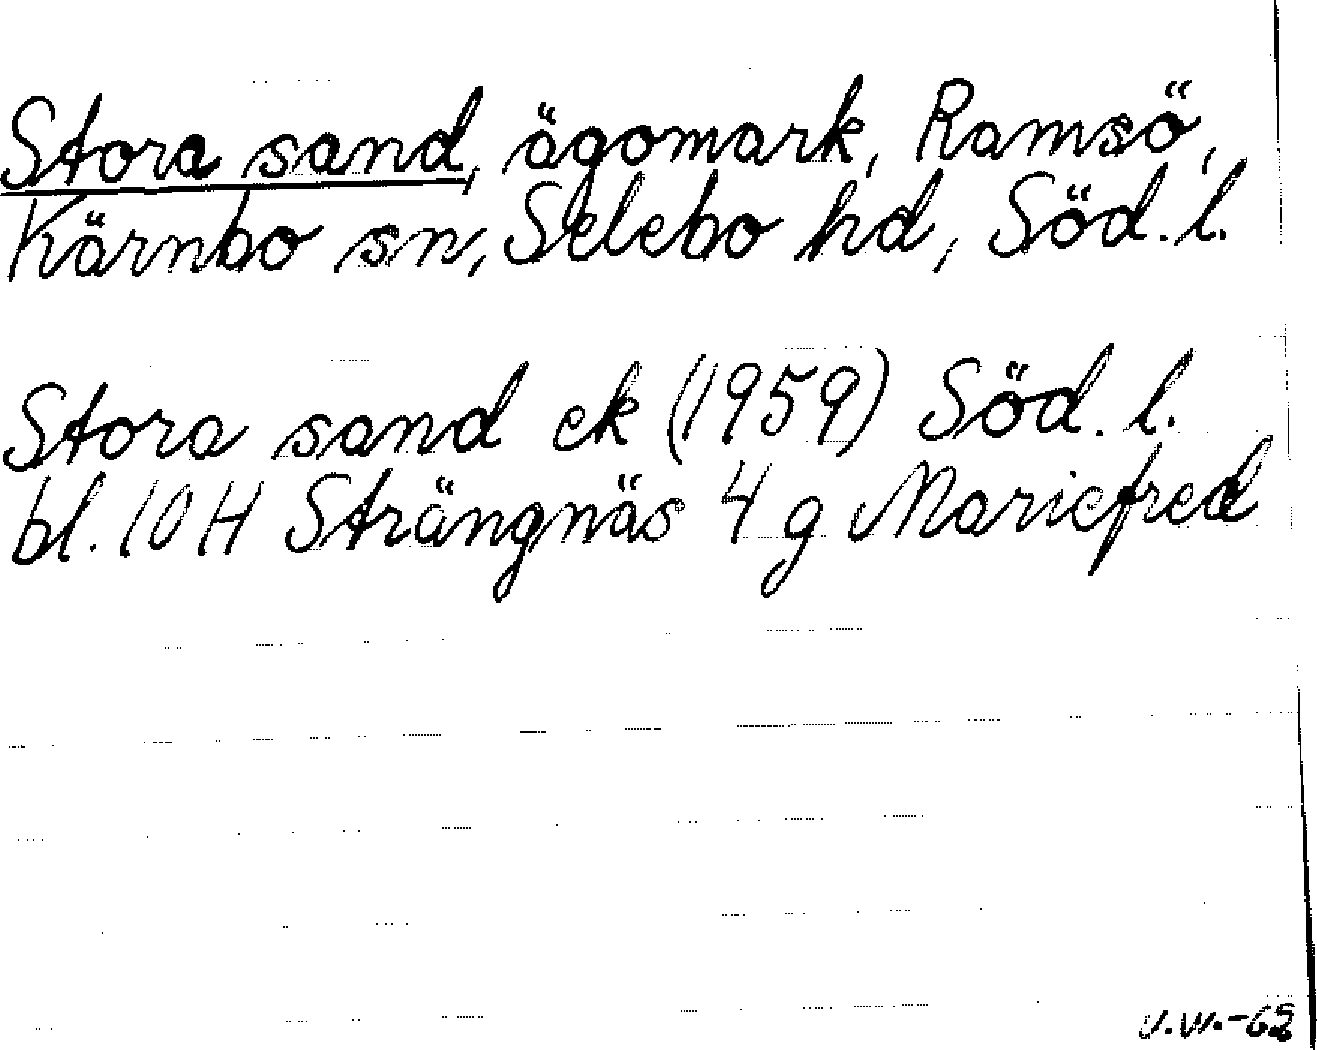 Stora sand, ägomark, Ramsö,
Kärnbo sn, Selebo hd, Söd. l.
Stora sand ek (1959) Söd. l.
bl. 10 H Strängnäs 4 g Mariefred